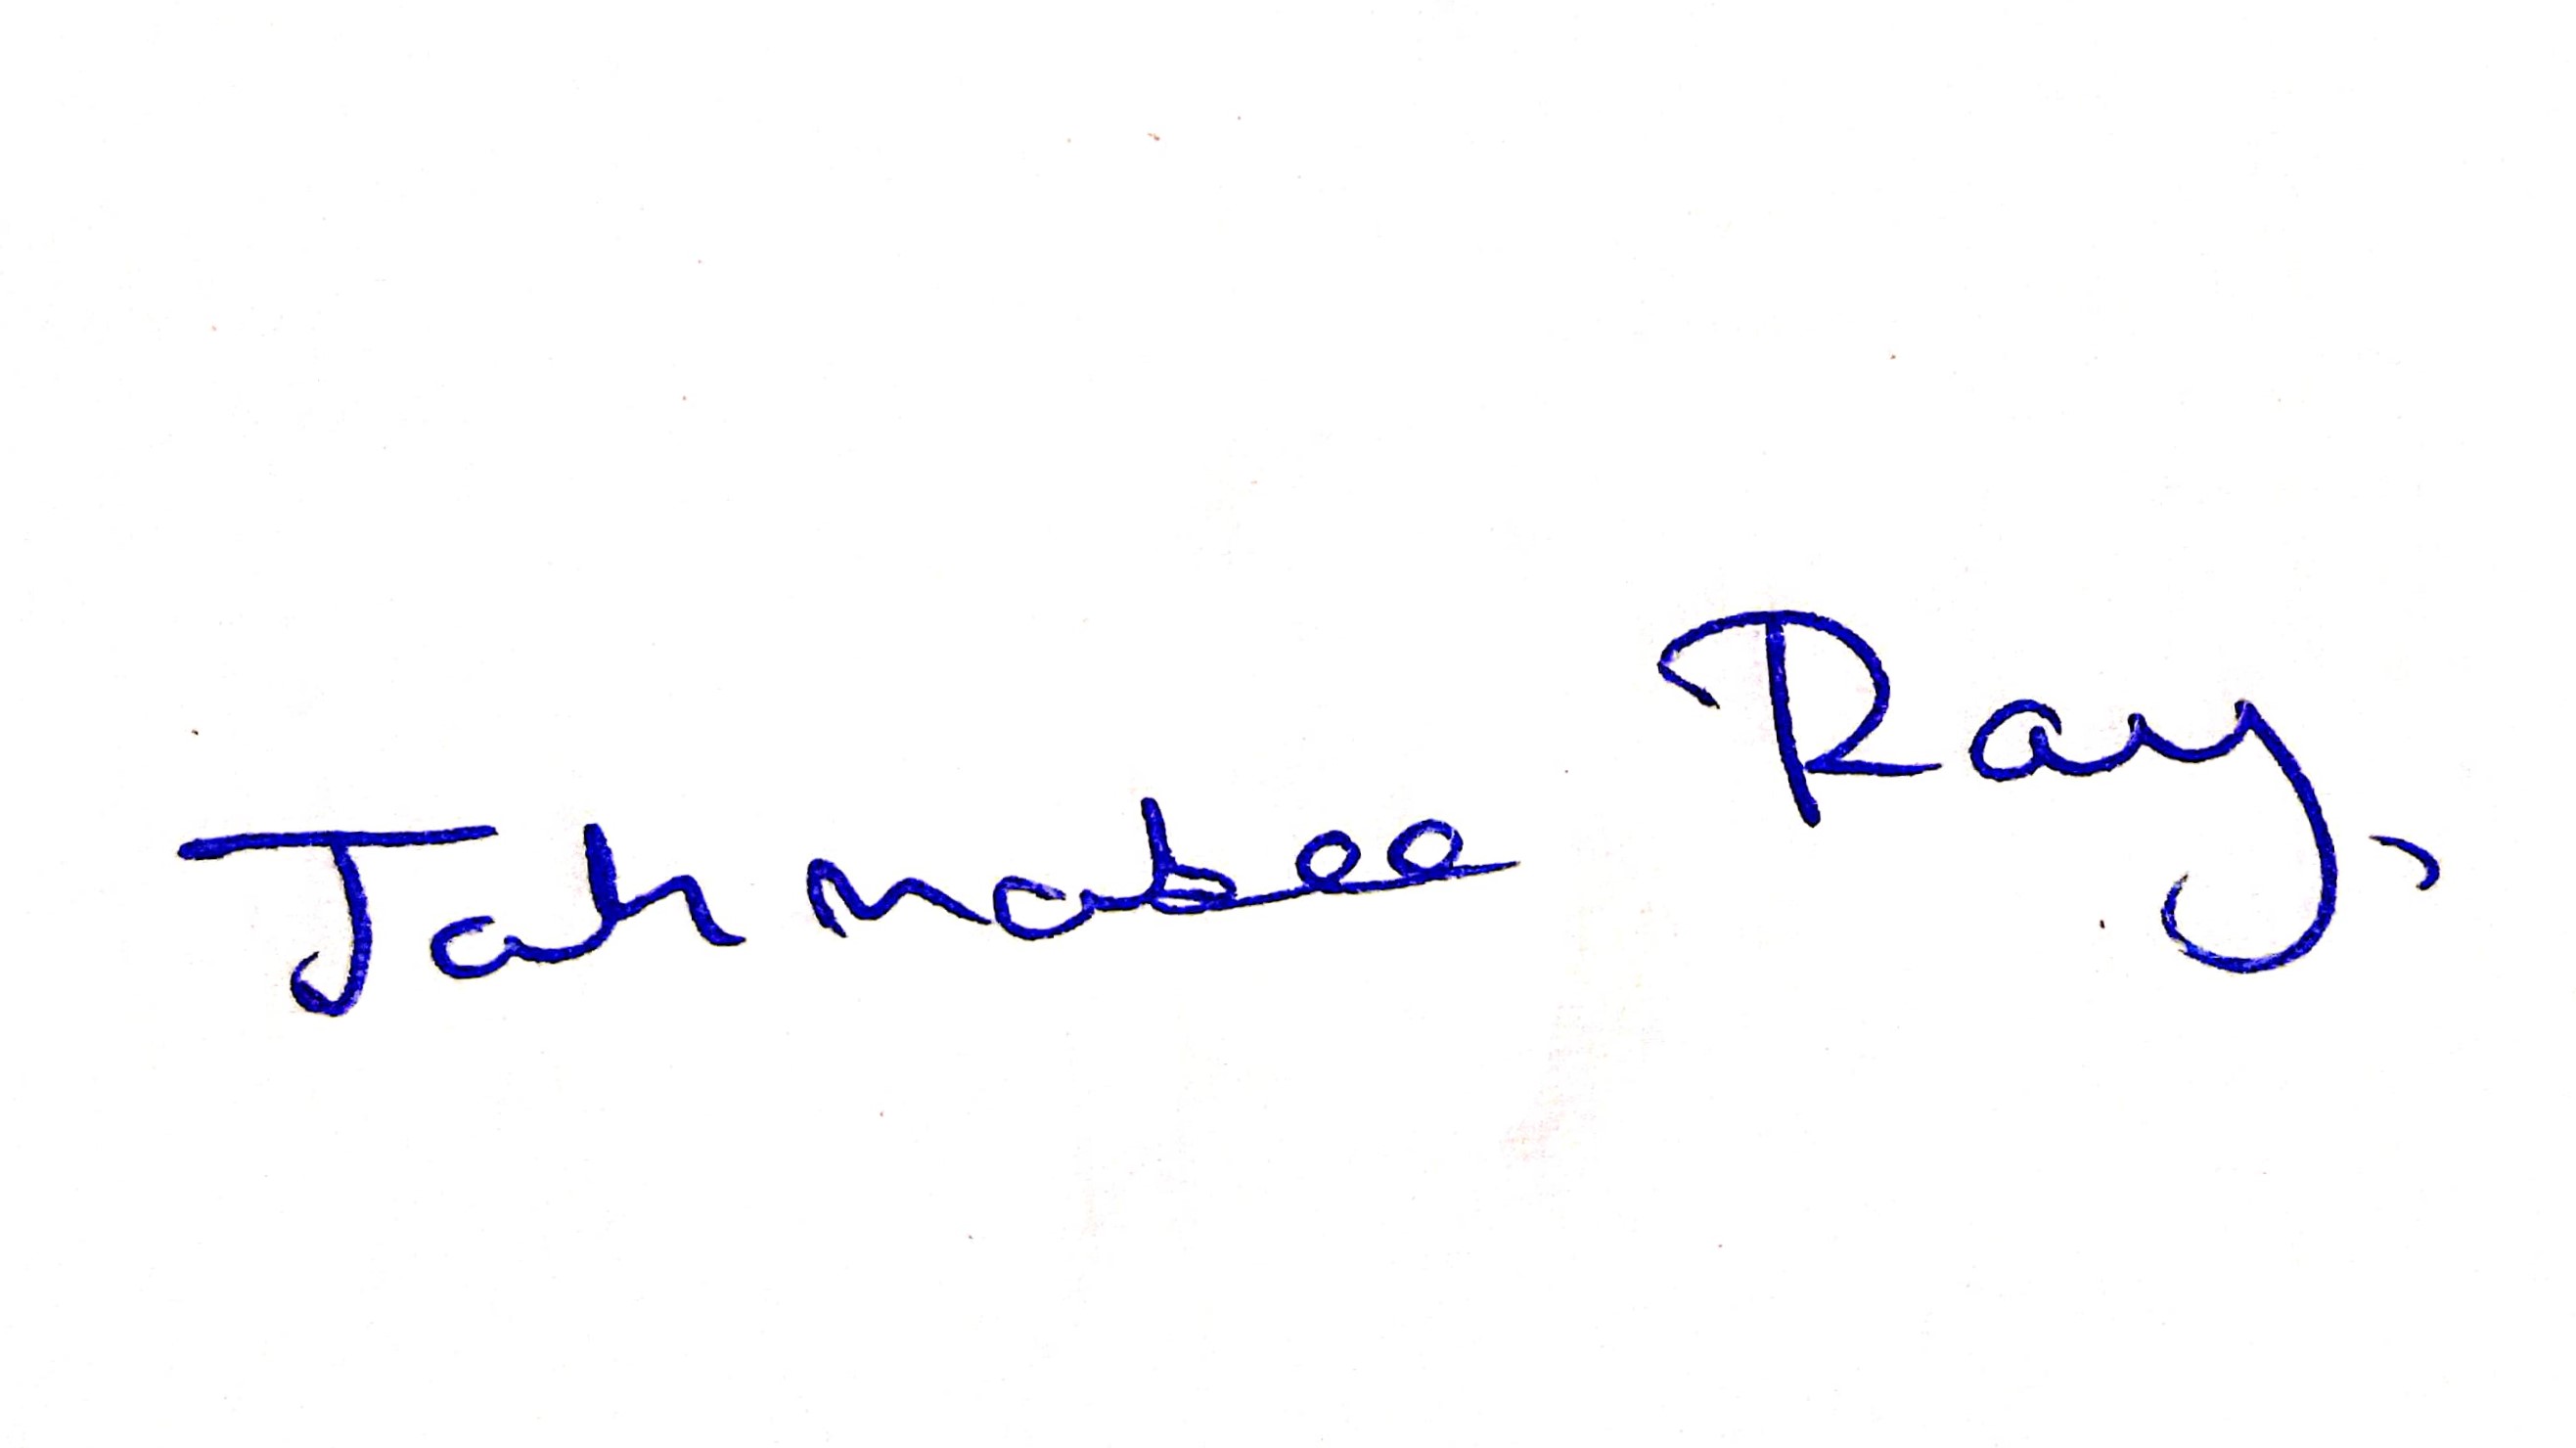 Jahnabee Ray,